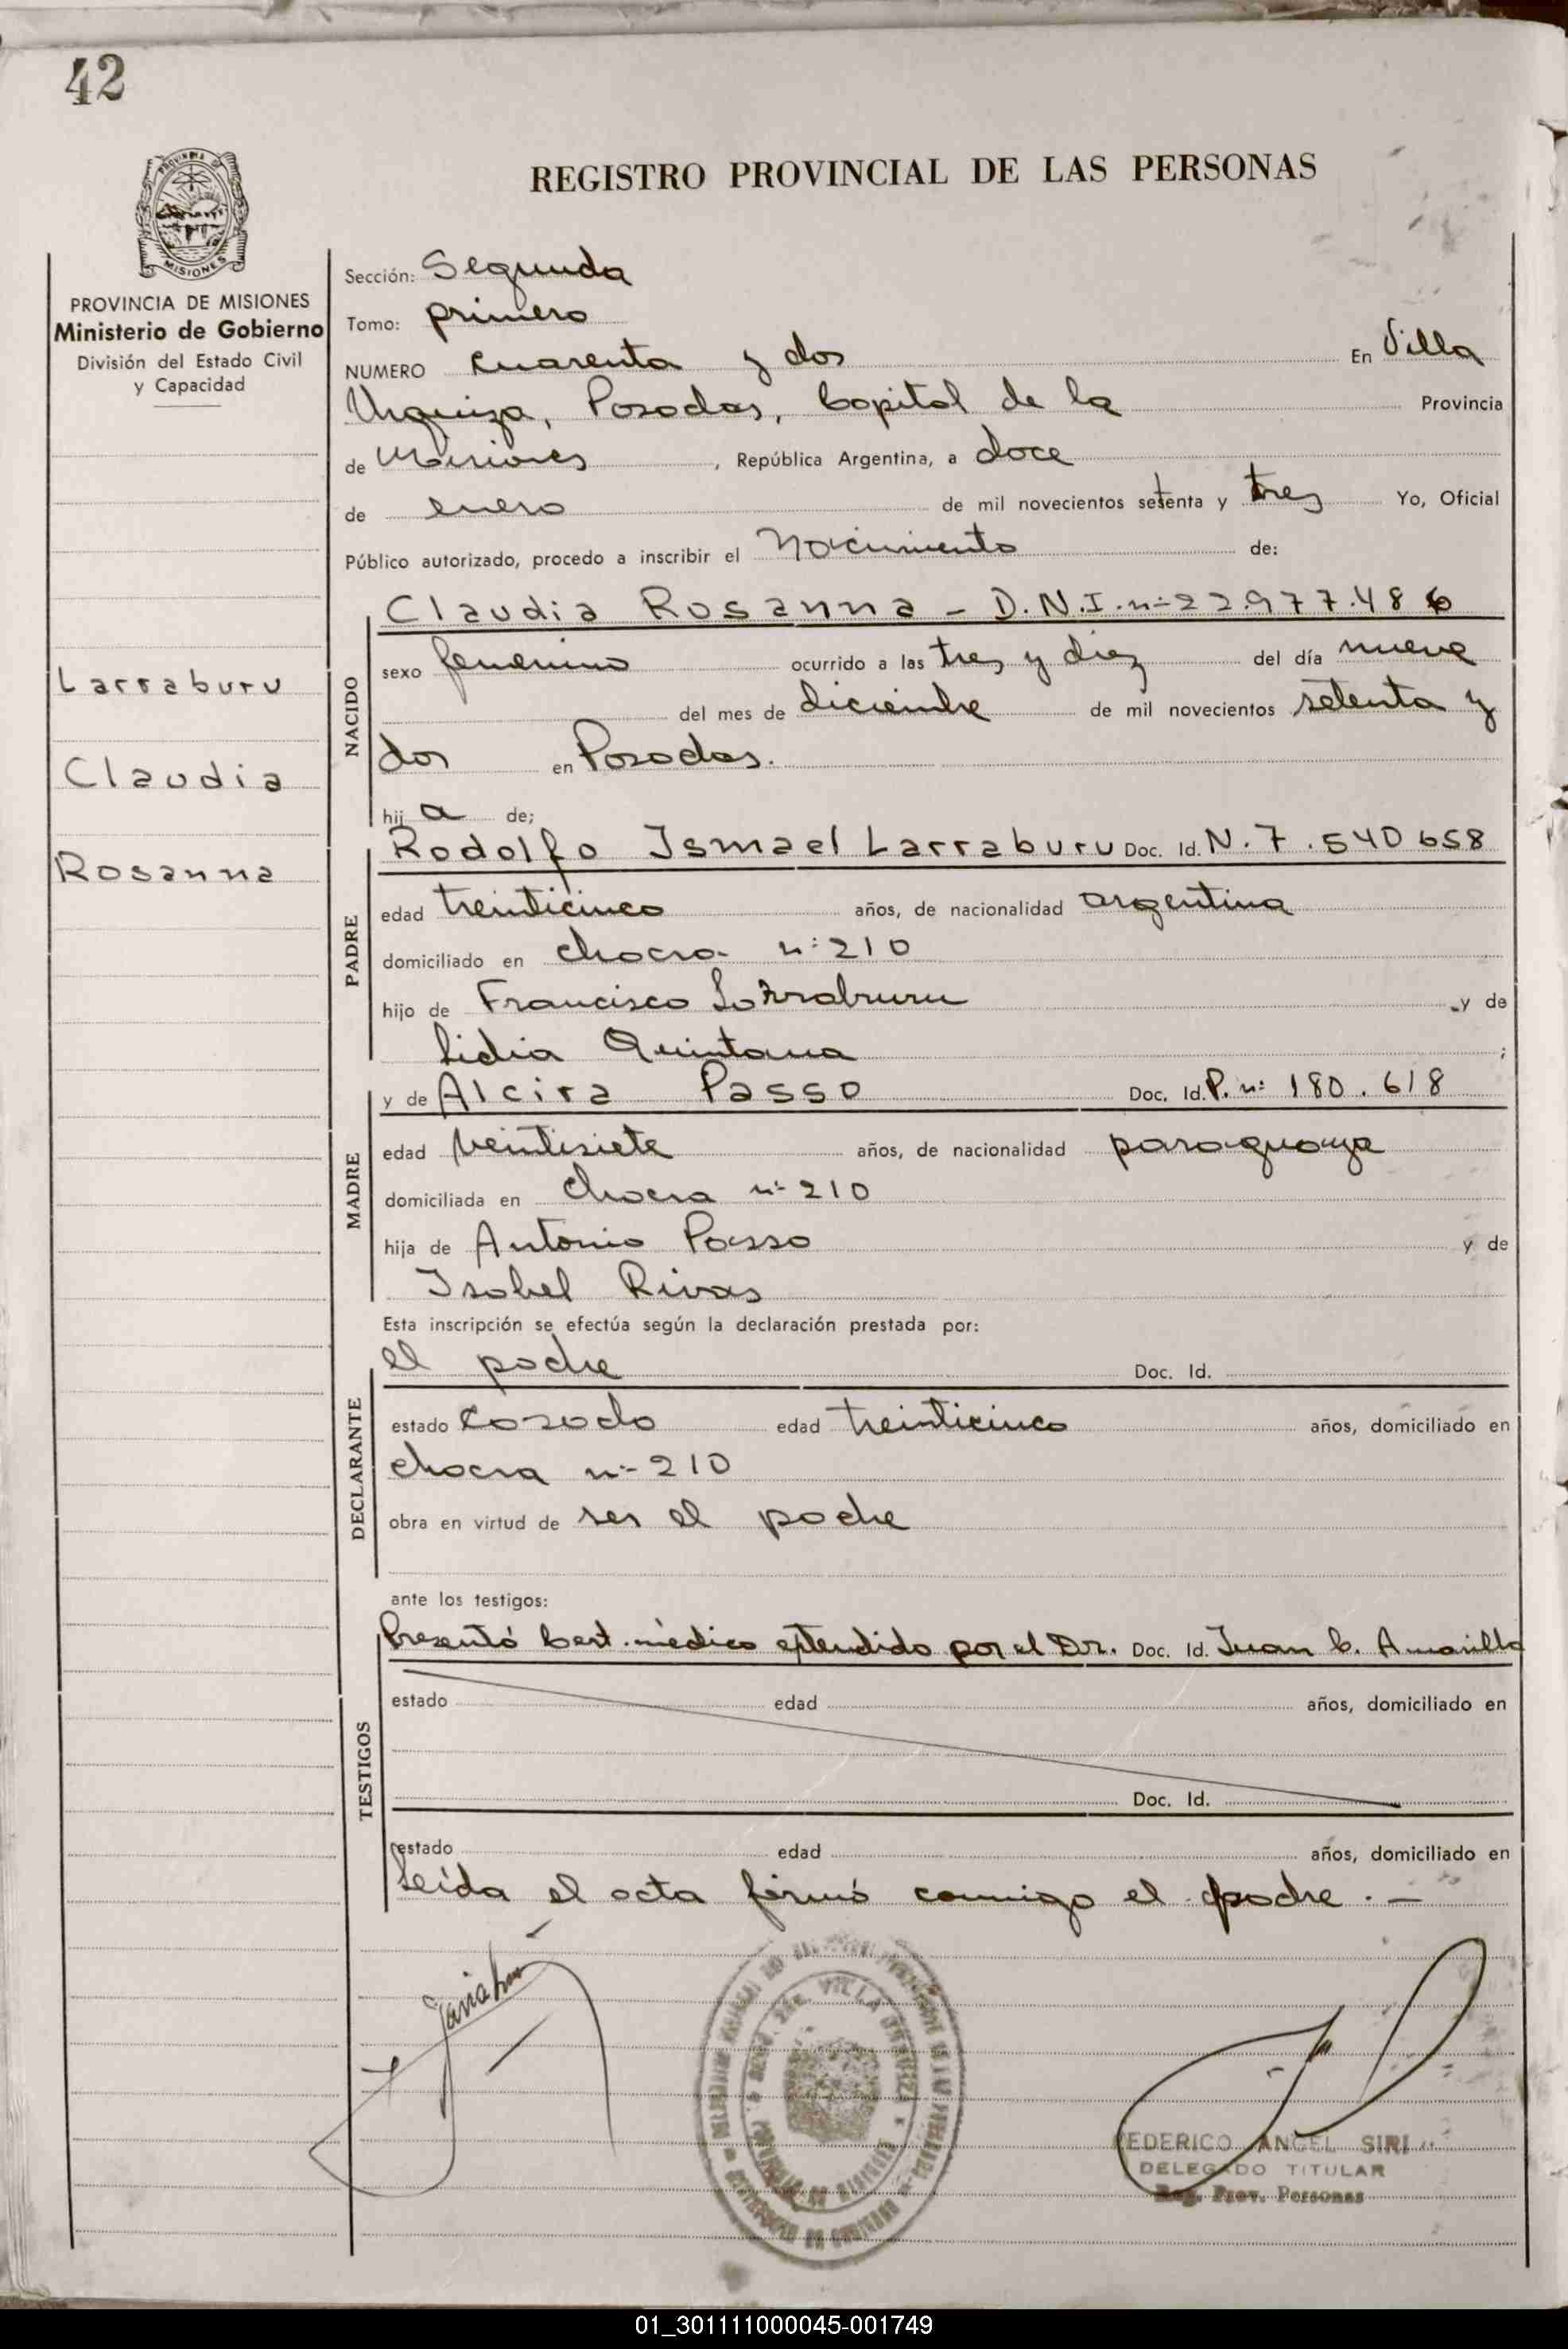 42
REGISTRO PROVINCIAL DE LAS PERSONAS
PROVINCIA DE MISIONES
Ministerio de Gobierno
División del Estado Civil
y Capacidad
Larraburu
Claudia
Rosanna
Sección: Segunda
Tomo: primero
NUMERO cuarenta y dos En Villa
Urquiza, Posadas, Capital de la Provincia
de Misiones, República Argentina, a doce
de enero de mil novecientos setenta y tres Yo, Oficial
Público autorizado, procedo a inscribir el Nacimiento de:
NACIDO
Claudia Rosanna - D.N.I. nº 22.977.486
sexo femenino ocurrido a las tres y diez del día nueve
del mes de diciembre de mil novecientos setenta y
dos en Posadas.
hij a de;
PADRE
Rodolfo Ismael Larraburu Doc. Id. N. 7.540658
edad treinticinco años, de nacionalidad argentina
domiciliado en chacra nº 210
hijo de Francisco Larraburu y de
Lidia Quintana ;
MADRE
y de Alcira Passo Doc. Id. P. nº 180.618
edad veintisiete años, de nacionalidad paraguaya
domiciliada en chacra nº 210
hija de Antonio Passo y de
Isabel Rivas
Esta inscripción se efectúa según la declaración prestada por:
DECLARANTE
el padre Doc. Id.
estado casado edad treinticinco años, domiciliado en
chacra nº 210
obra en virtud de ser el padre
ante los testigos:
TESTIGOS
Presentó Cert. médico extendido por el Dr. Doc. Id. Juan C. Amarilla
estado edad años, domiciliado en
Doc. Id.
estado edad años, domiciliado en
Leída el acta firmó conmigo el padre. -
VILLA URQUIZA
FEDERICO ANGEL SIRI
DELEGADO TITULAR
Reg. Prov. Personas
01_301111000045-001749